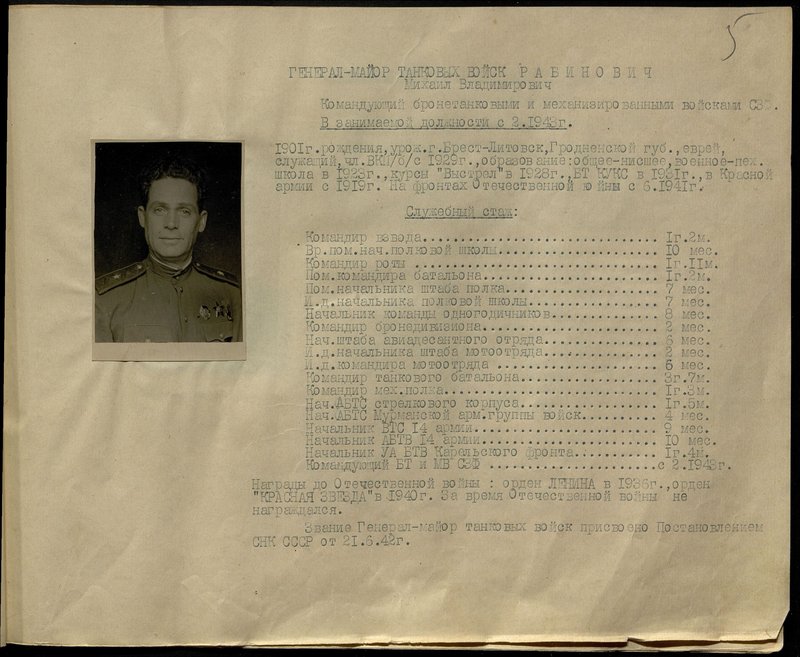 5
ГЕНЕРАЛ-МАЙОР ТАНКОВЫХ ВОЙСК Р А Б И Н О В И Ч
Михаил Владимирович
Командующий бронетанковыми и механизированными войсками СЗФ.
В занимаемой должности с 2.1943г.
1901г.рождения,урож.г.Брест-Литовск,Гродненской губ.,еврей,
служащий,чл.ВКП/б/с 1929г.,образование:общее-нисшее,военное-пех.
школа в 1923г.,курсы "Выстрел"в 1928г.,БТ КУКС в 1931г.,в Красной
армии с 1919г. На фронтах Отечественной войны с 6.1941г.
Служебный стаж:
Командир взвода.................................. 1г.2м.
Вр.пом.нач.полковой школы........................ 10 мес.
Командир роты ................................... 1г.11м.
Пом.командира батальона.......................... 1г.2м.
Пом.начальника штаба полка....................... 7 мес.
И.д.начальника полковой школы.................... 7 мес.
Начальник команды одногодичников................. 8 мес.
Командир бронедивизиона.......................... 2 мес.
Нач.штаба авиадесантного отряда.................. 6 мес.
И.д.начальника штаба мотоотряда.................. 2 мес.
И.д.командира мотоотряда ........................ 6 мес.
Командир танкового батальона..................... 3г.7м.
Командир мех.полка............................... 1г.3м.
Нач.АБТС стрелкового корпуса..................... 1г.5м.
Нач.АБТС Мурманской арм.группы войск............. 4 мес.
Начальник ВТС 14 армии........................... 9 мес.
Начальник АБТВ 14 армии.......................... 10 мес.
Начальник УА БТВ Карельского фронта.............. 1г.4м.
Командующий БТ и МВ СЗФ .........................с 2.1943г.
Награды до Отечественной войны : орден ЛЕНИНА в 1936г.,орден
"КРАСНАЯ ЗВЕЗДА"в 1940г. За время Отечественной войны не
награждался.
Звание Генерал-майор танковых войск присвоено Постановлением
СНК СССР от 21.6.42г.